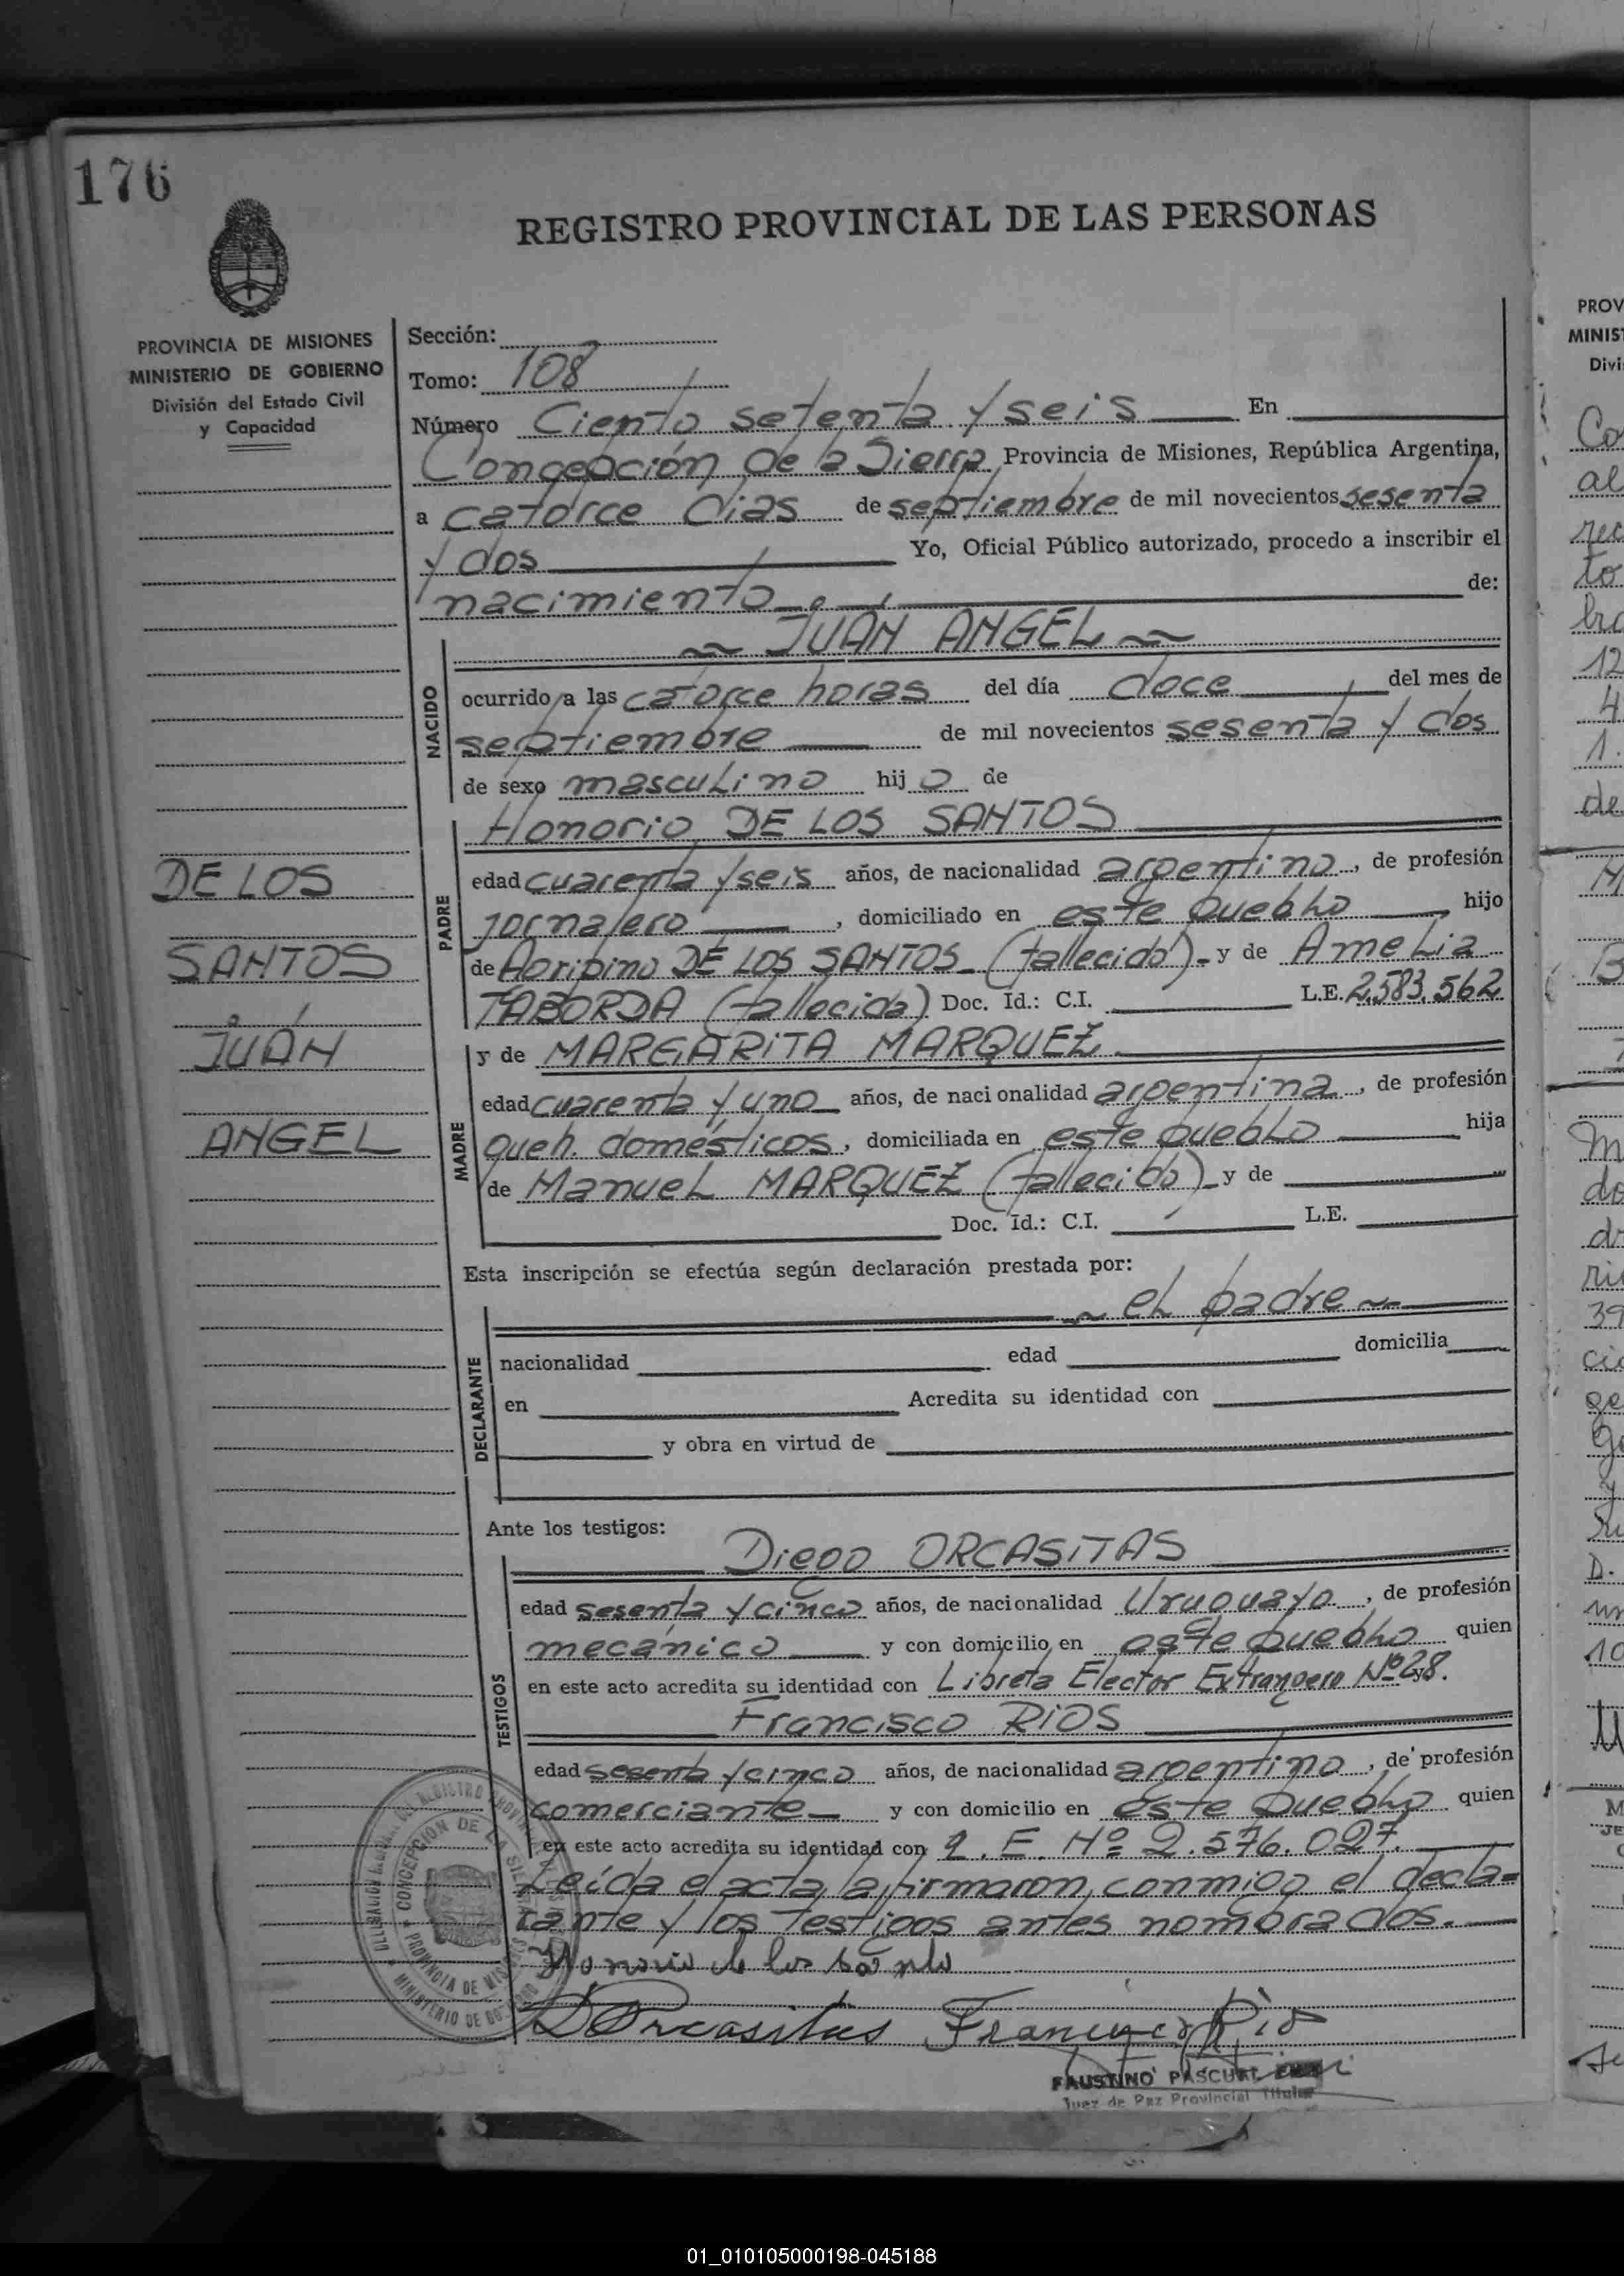 176
REGISTRO PROVINCIAL DE LAS PERSONAS
PROVINCIA DE MISIONES
MINISTERIO DE GOBIERNO
División del Estado Civil
y Capacidad
Sección:
Tomo: 108
Número Ciento setenta y seis En
Concepción de la Sierra Provincia de Misiones, República Argentina,
a catorce dias de septiembre de mil novecientos sesenta
y dos Yo, Oficial Público autorizado, procedo a inscribir el
nacimiento de:
JUAN ANGEL
NACIDO
ocurrido a las catorce horas del día doce del mes de
septiembre de mil novecientos sesenta y dos
de sexo masculino hijo de
Honorio DE LOS SANTOS
PADRE
edad cuarenta y seis años, de nacionalidad argentino, de profesión
jornalero, domiciliado en este pueblo hijo
de Agripino DE LOS SANTOS (fallecido) y de Amelia
TABORDA (fallecida) Doc. Id.: C.I. L.E. 2.583.562
y de MARGARITA MARQUEZ
MADRE
edad cuarenta y uno años, de nacionalidad argentina, de profesión
queh. domésticos, domiciliada en este pueblo hija
de Manuel MARQUEZ (fallecido) y de
Doc. Id.: C.I. L.E.
DE LOS
SANTOS
JUAN
ANGEL
Esta inscripción se efectúa según declaración prestada por:
el padre
DECLARANTE
nacionalidad edad domicilia
en Acredita su identidad con
y obra en virtud de
Ante los testigos:
Diego ORCASITAS
TESTIGOS
edad sesenta y cinco años, de nacionalidad Uruguayo, de profesión
mecánico y con domicilio en este pueblo quien
en este acto acredita su identidad con Libreta Elector Extrangero Nº 28.
Francisco RIOS
edad sesenta y cinco años, de nacionalidad argentino, de profesión
comerciante y con domicilio en este pueblo quien
en este acto acredita su identidad con L. E. Nº 2.576.027.
Leída el acta, la firmaron conmigo el decla-
rante y los testigos antes nombrados.
Honorio de los santo
D Orcasitas Francisco Rios
FAUSTINO PASCUAL
Juez de Paz Provincial Titular
CONCEPCION DE LA SIERRA
PROVINCIA DE MISIONES
MINISTERIO DE GOBIERNO
01_010105000198-045188